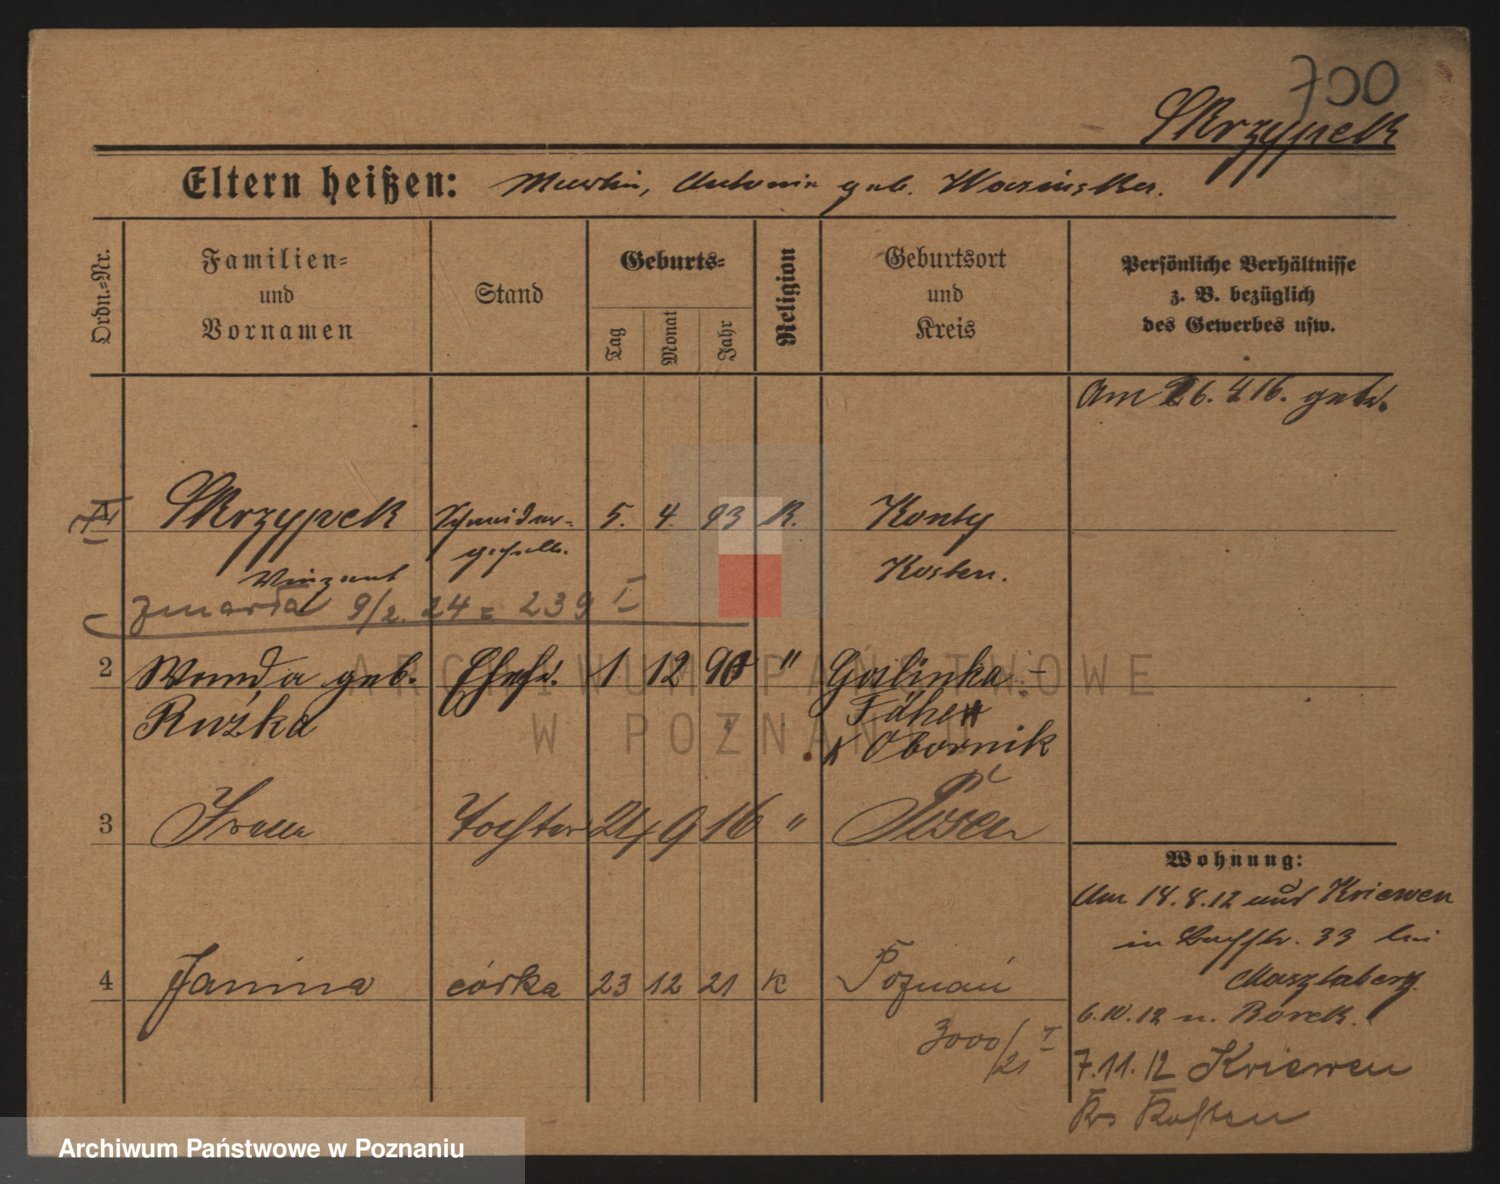 700
Skrzypek
Eltern heißen: Martin, Antonie geb. Wozinska.
Ordn.-Nr.
Familien- und Vornamen
Stand
Geburts-
Tag
Monat
Jahr
Religion
Geburtsort und Kreis
Persönliche Verhältnisse z. B. bezüglich des Gewerbes usw.
Am 26. 4 16. getr.
Skrzypek Schneider- 5. 4. 93 K. Konty
geselle. Kosten.
Vinzent
zmarła 9/2. 24 = 239 I
2 Wanda geb. Ehefr. 1 12 90 " Goslinka -
Ruźka
Obornik
3 Irena Tochter 24 9 16 " Posen
Wohnung:
Am 14.8.12 aus Kriewen
in 33 bei
4 Janina córka 23 12 21 K Poznań
6.10.12 n. Borek.
3000/21 I
7.11.12 Kriewen
Krs Kosten
ARCHIWUM PAŃSTWOWE
W POZNANIU
Archiwum Państwowe w Poznaniu